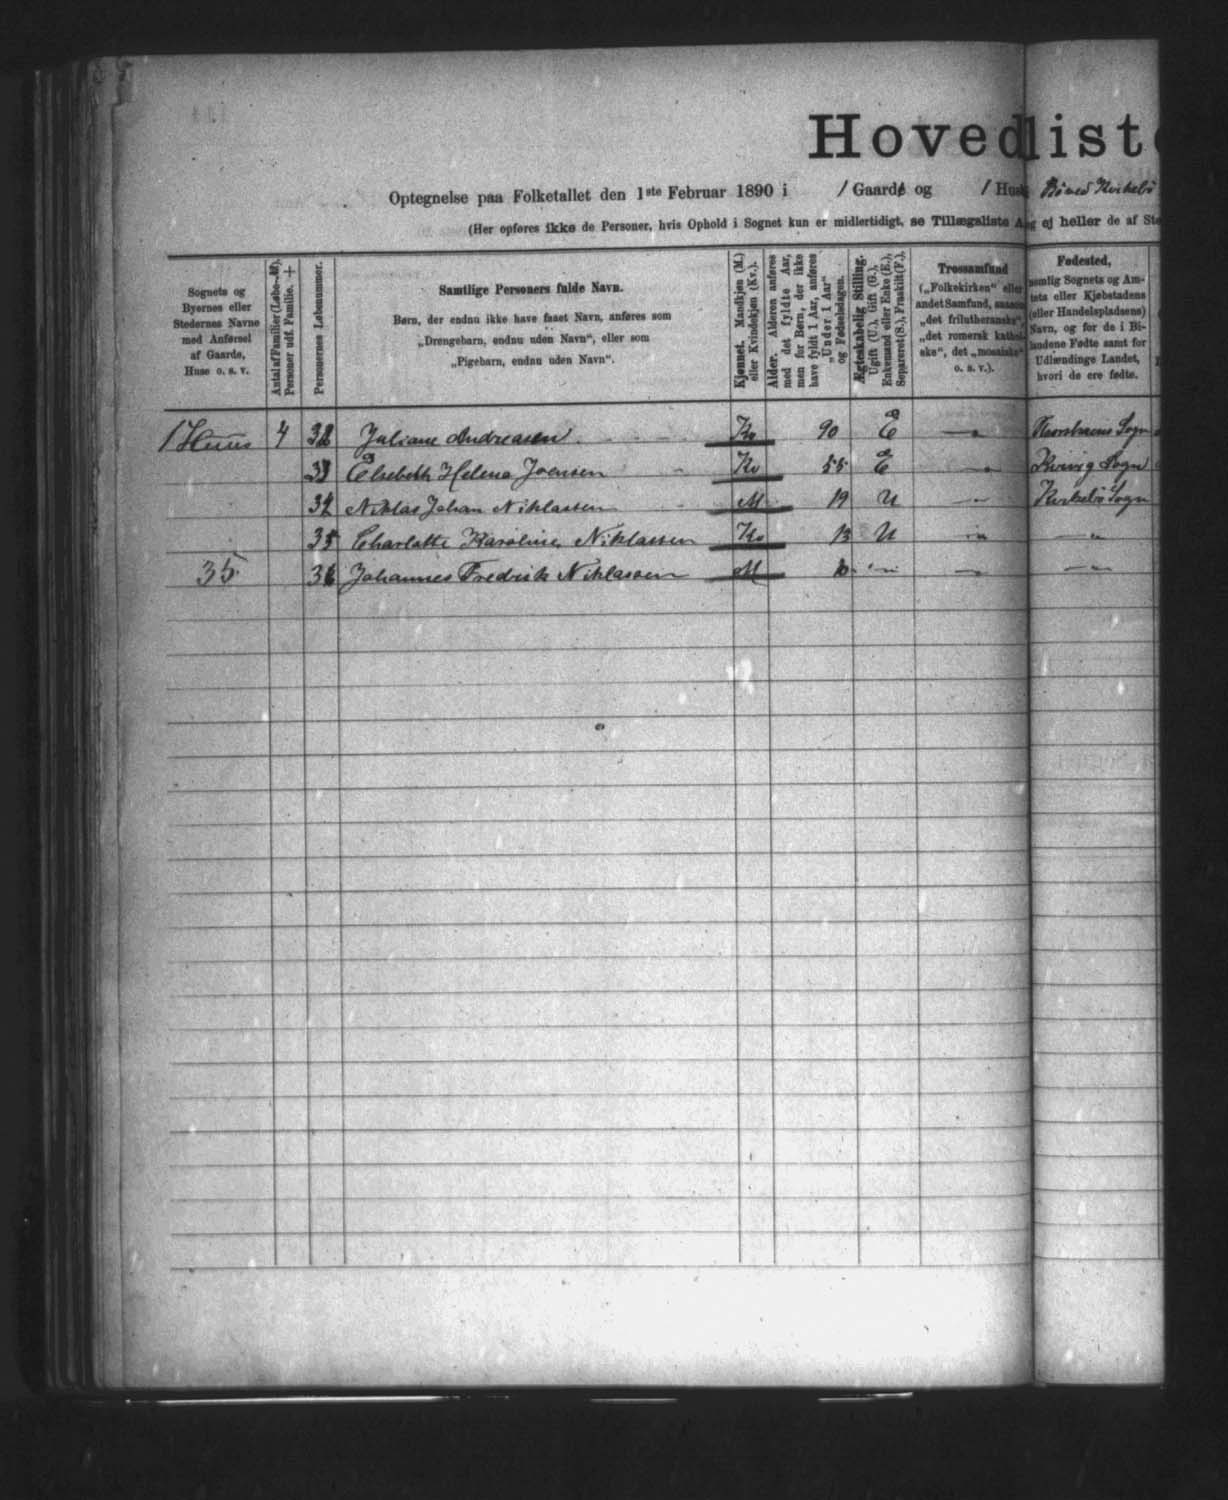 Hovedliste
Optegnelse paa Folketallet den 1ste Februar 1890 i 1 Gaard og 1 Hus
(Her opføres ikke de Personer, hvis Ophold i Sognet kun er midlertidigt, se Tillægsliste A, og ej heller de af
Sognets og Byernes eller Stedernes Navne med Anførsel af Gaarde, Huse o. s. v.
Antal af Familier (Løbe-№). Personer udf. Familie. +
Personernes Løbenummer.
Samtlige Personers fulde Navn.
Børn, der endnu ikke have faaet Navn, anføres som
„Drengebarn, endnu uden Navn", eller som
„Pigebarn, endnu uden Navn".
Kjønnet. Mandkjøn (M.) eller Kvindekjøn (Kv.).
Alder. Alderen anføres med det fyldte Aar, men for Børn, der ikke have fyldt 1 Aar, anføres „Under 1 Aar" og Fødselsdagen.
Ægteskabelig Stilling. Ugift (U.), Gift (G.), Enkemand eller Enke (E.), Separeret (S.), Fraskilt (F.).
Trossamfund
(„Folkekirken" eller
andet Samfund, saasom
„det frilutheranske",
„det romersk katholske", det „mosaiske"
o. s. v.).
Fødested,
nemlig Sognets og Amtets eller Kjøbstadens
(eller Handelspladsens)
Navn, og for de i Bilandene Fødte samt for
Udlændinge Landet,
hvori de ere fødte.
1 Huus 4 32 Juliane Andreasen Kv 90 E Sogn
33 Elsebeth Helena Joensen Kv 55 E Kvivig Sogn
34 Niklas Johan Niklassen M 19 U Sogn
35 Charlotte Karoline Niklassen Kv 13 U
35 36 Johannes Fredrik Niklassen M 10